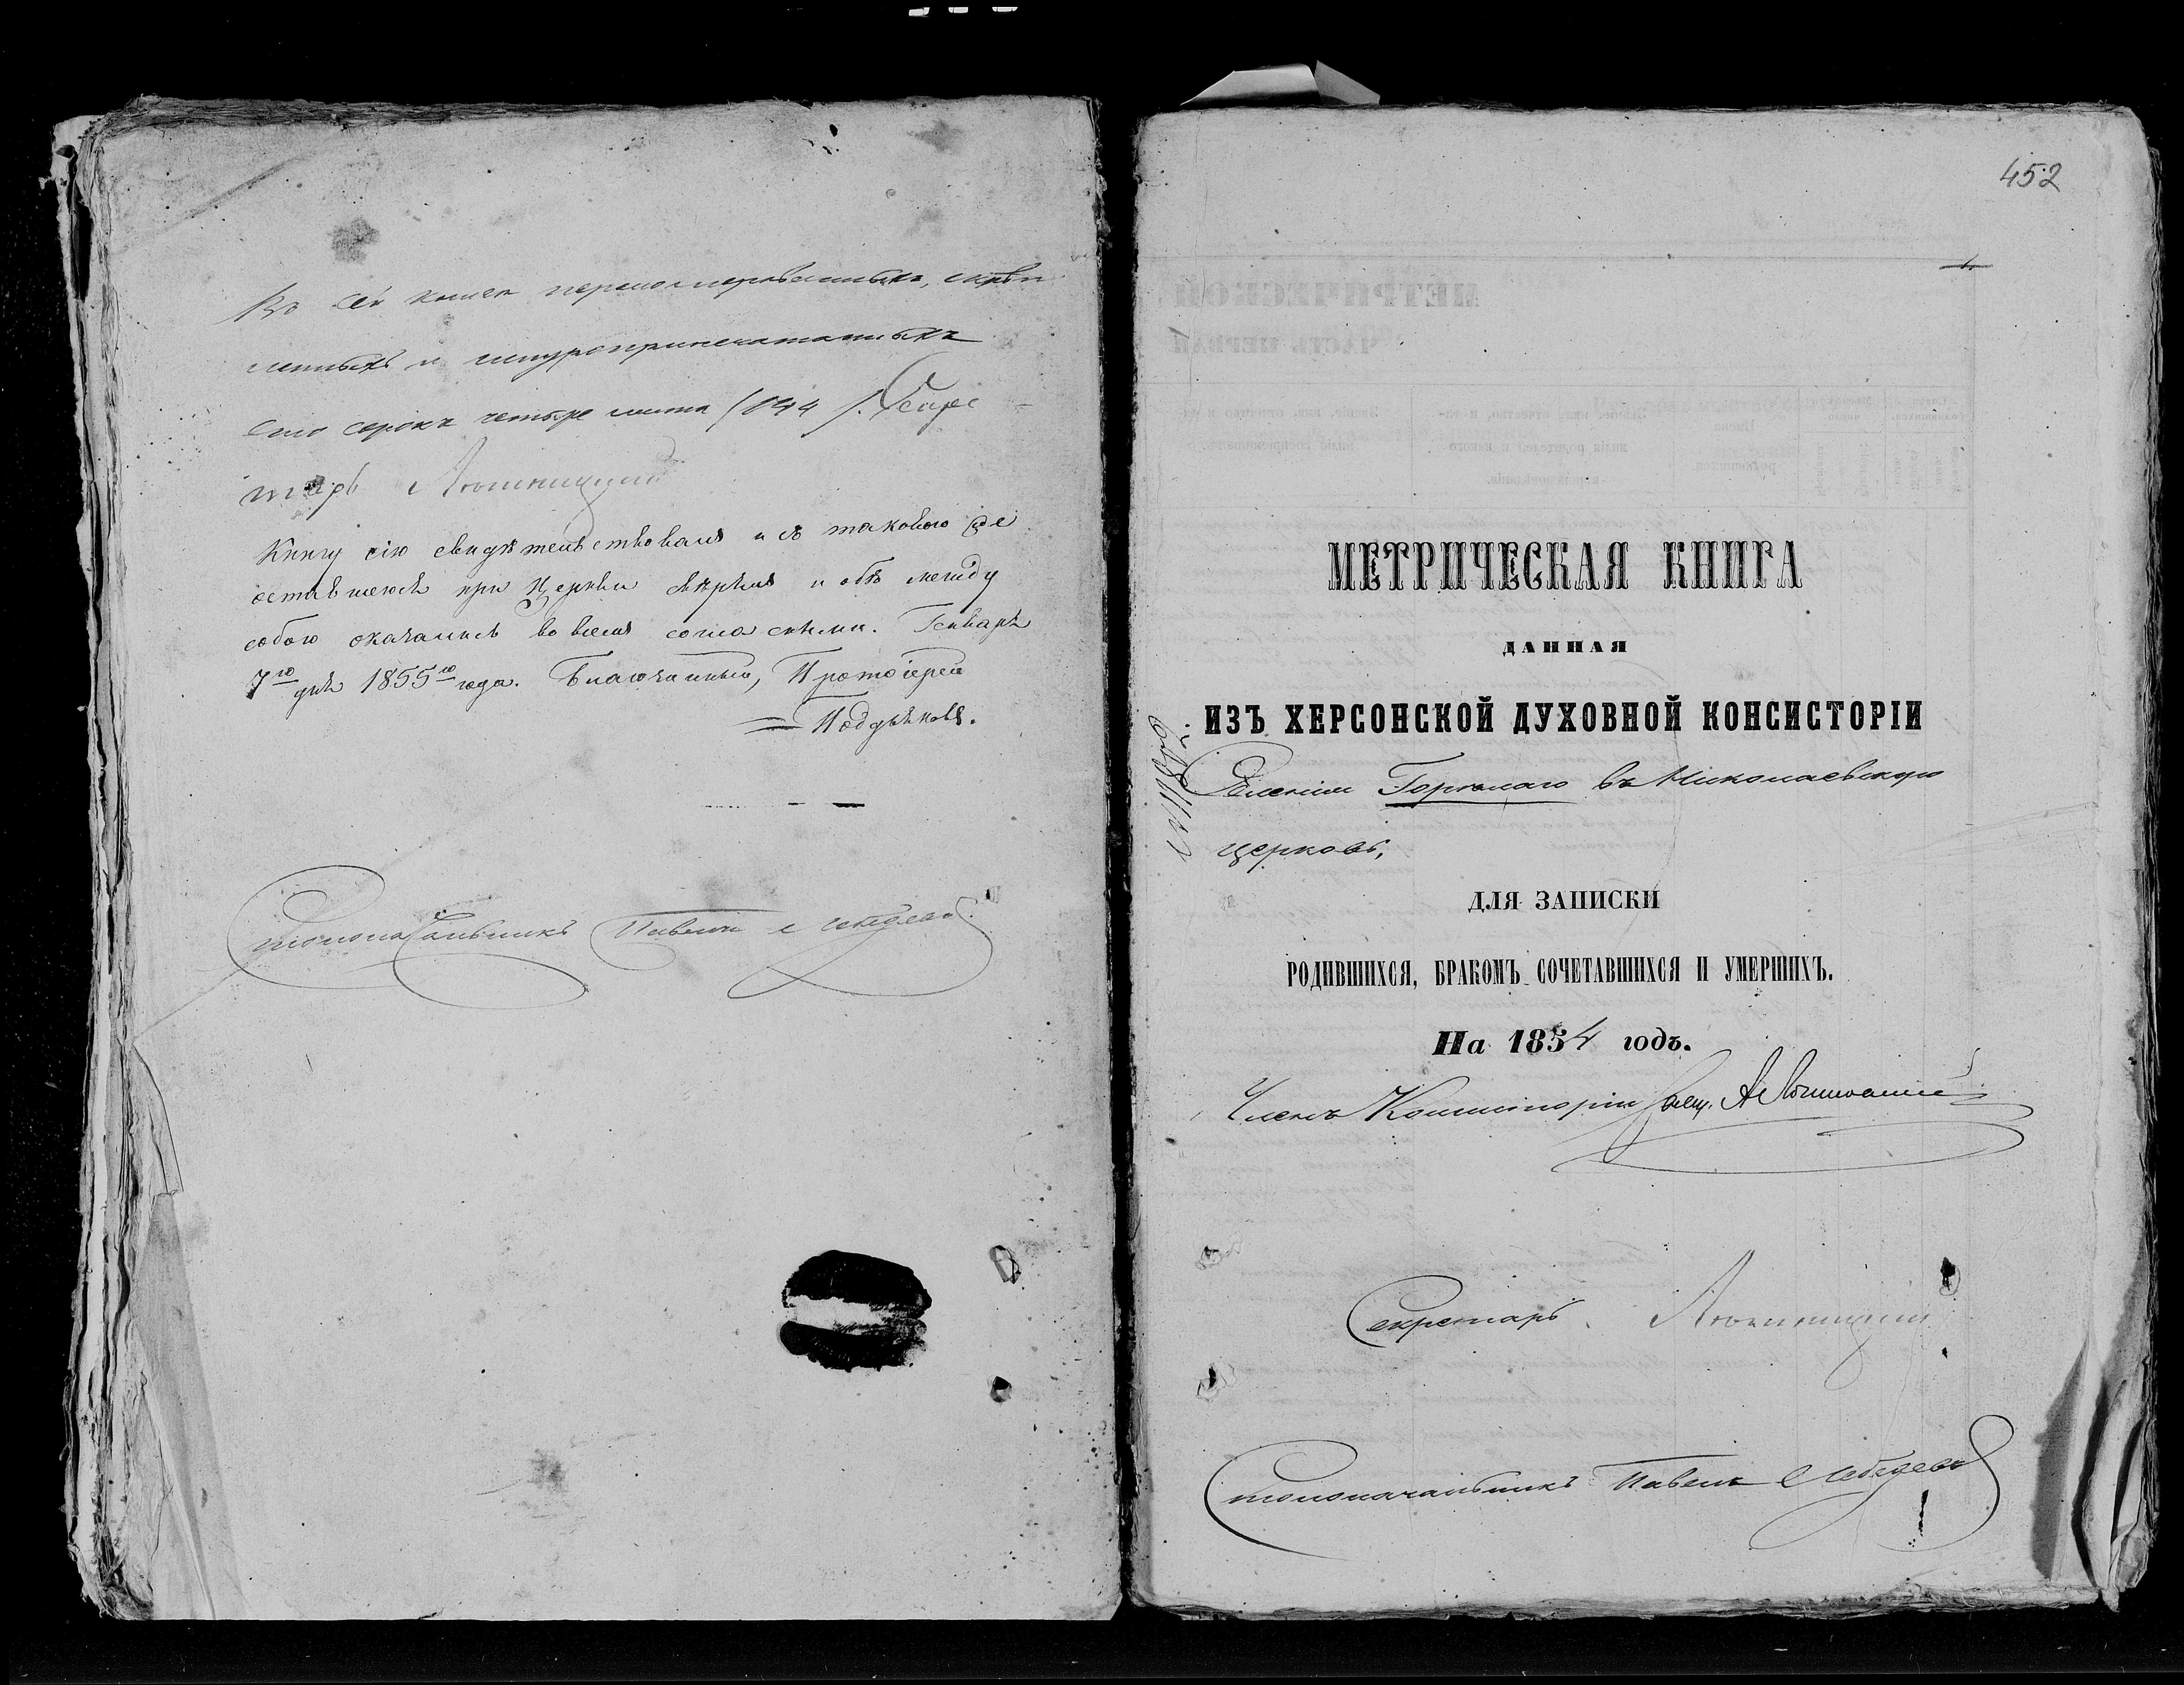 Въ сей книге перенумерованныхъ, скреп
ленныхъ и шнуроприпечатанныхъ
Сто сорокъ четыре листа (144). Секре
тарь
Книгу сію свидѣтельствовалъ и съ таковою же
оставшеюся при Церкви свѣрялъ и обѣ между
собою оказались во всемъ согласными. Генваря
7го дня 1855го года. Благочинный, Протоіерей
Поддубковъ.
Столоначальникъ Павелъ Лебедевъ
452
1.
МЕТРИЧЕСКАЯ КНИГА
ДАННАЯ
ИЗЪ ХЕРСОНСКОЙ ДУХОВНОЙ КОНСИСТОРІИ
Селенія Горѣлаго въ Николаевскую
церковь,
ДЛЯ ЗАПИСКИ
РОДИВШИХСЯ, БРАКОМЪ СОЧЕТАВШИХСЯ И УМЕРШИХЪ.
На 1854 годъ.
Членъ Консисторіи Свящ.
Секретарь
Столоначальникъ Павелъ Лебедевъ